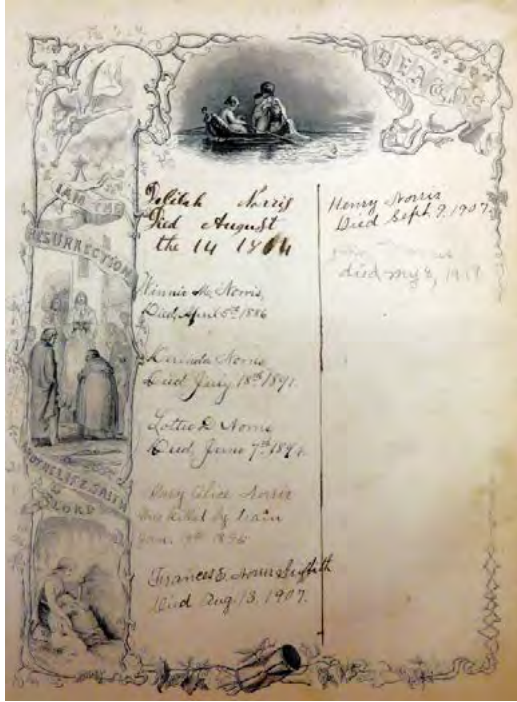 DEATHS
I AM THE
RESURRECTION
AND THE LIFE SAITH
THE
LORD
Delilah Norris
Died August
the 14 1864
Winnie M. Norris,
Died, April 5th 1886
Norris
Died July 18th 1891.
Lottie D Norris
Died, June 7th
Mary Alice Norris
was killed by train
19th 1895
Frances E. Norris Griffith
Died Aug. 13, 1907.
Henry Norris
Died Sept. 9, 1907.
died